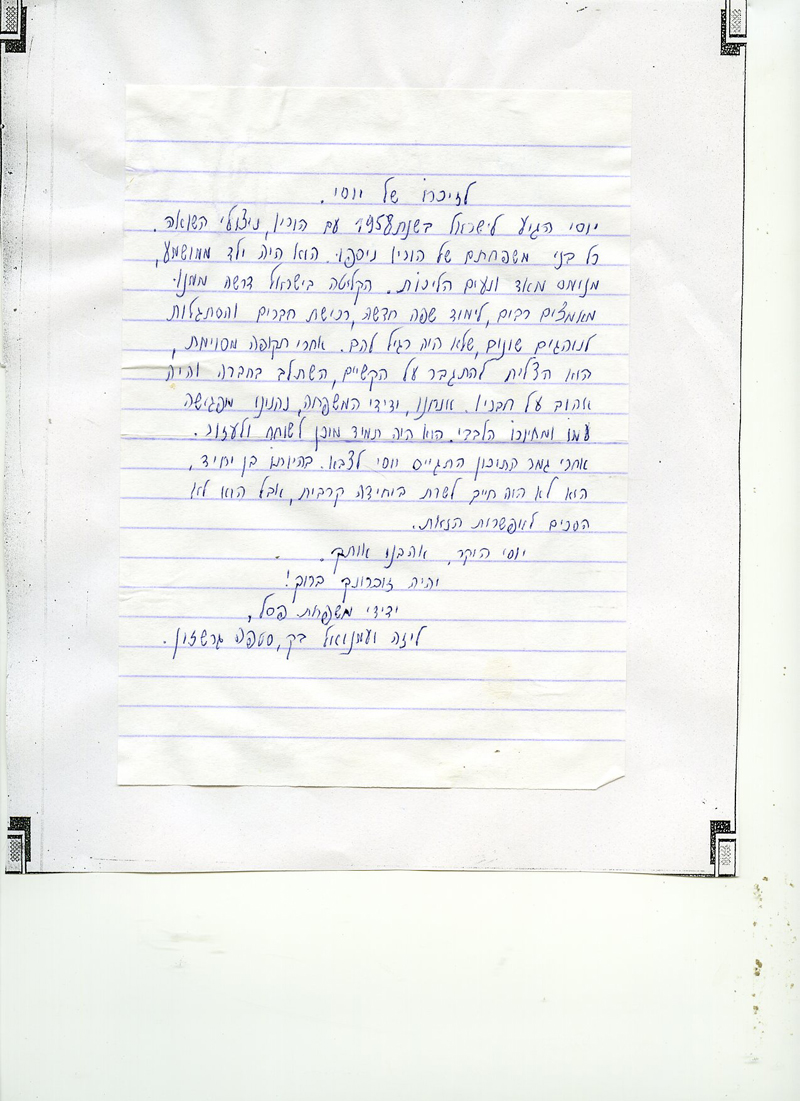 לזיכרו של יוסי.
יוסי הגיע לישראל בשנת 1958 עם הוריו, ניצולי השואה.
כל בני משפחתם של הוריו ניספו. הוא היה ילד ממושמע,
מנומס מאד ונעים הליכות. הקליטה בישראל דרשה ממנו
מאמצים רבים, לימוד שפה חדשה, רכישת חברים והסתגלות
לנוהגים שונים, שלא היה רגיל להם. אחרי תקופה מסוימת,
הוא הצליח להתגבר על הקשיים, השתלב בחברה והיה
אהוב על חבריו. אנחנו, ידידי המשפחה, נהנינו מפגישה
עמו ומחיוכו הלבבי. הוא היה תמיד מוכן לשוחח ולעזור.
אחרי גמר התיכון התגייס יוסי לצבא. בהיותו בן יחיד,
הוא לא היה חייב לשרת ביחידה קרבית, אבל הוא לא
הסכים לאפשרות הזאת.
יוסי היקר, אהבנו אותך.
יהיה זוכרונך ברוך!
ידידי משפחת פסל,
ליזה ועמנואל בק, סטפה גרשזון.